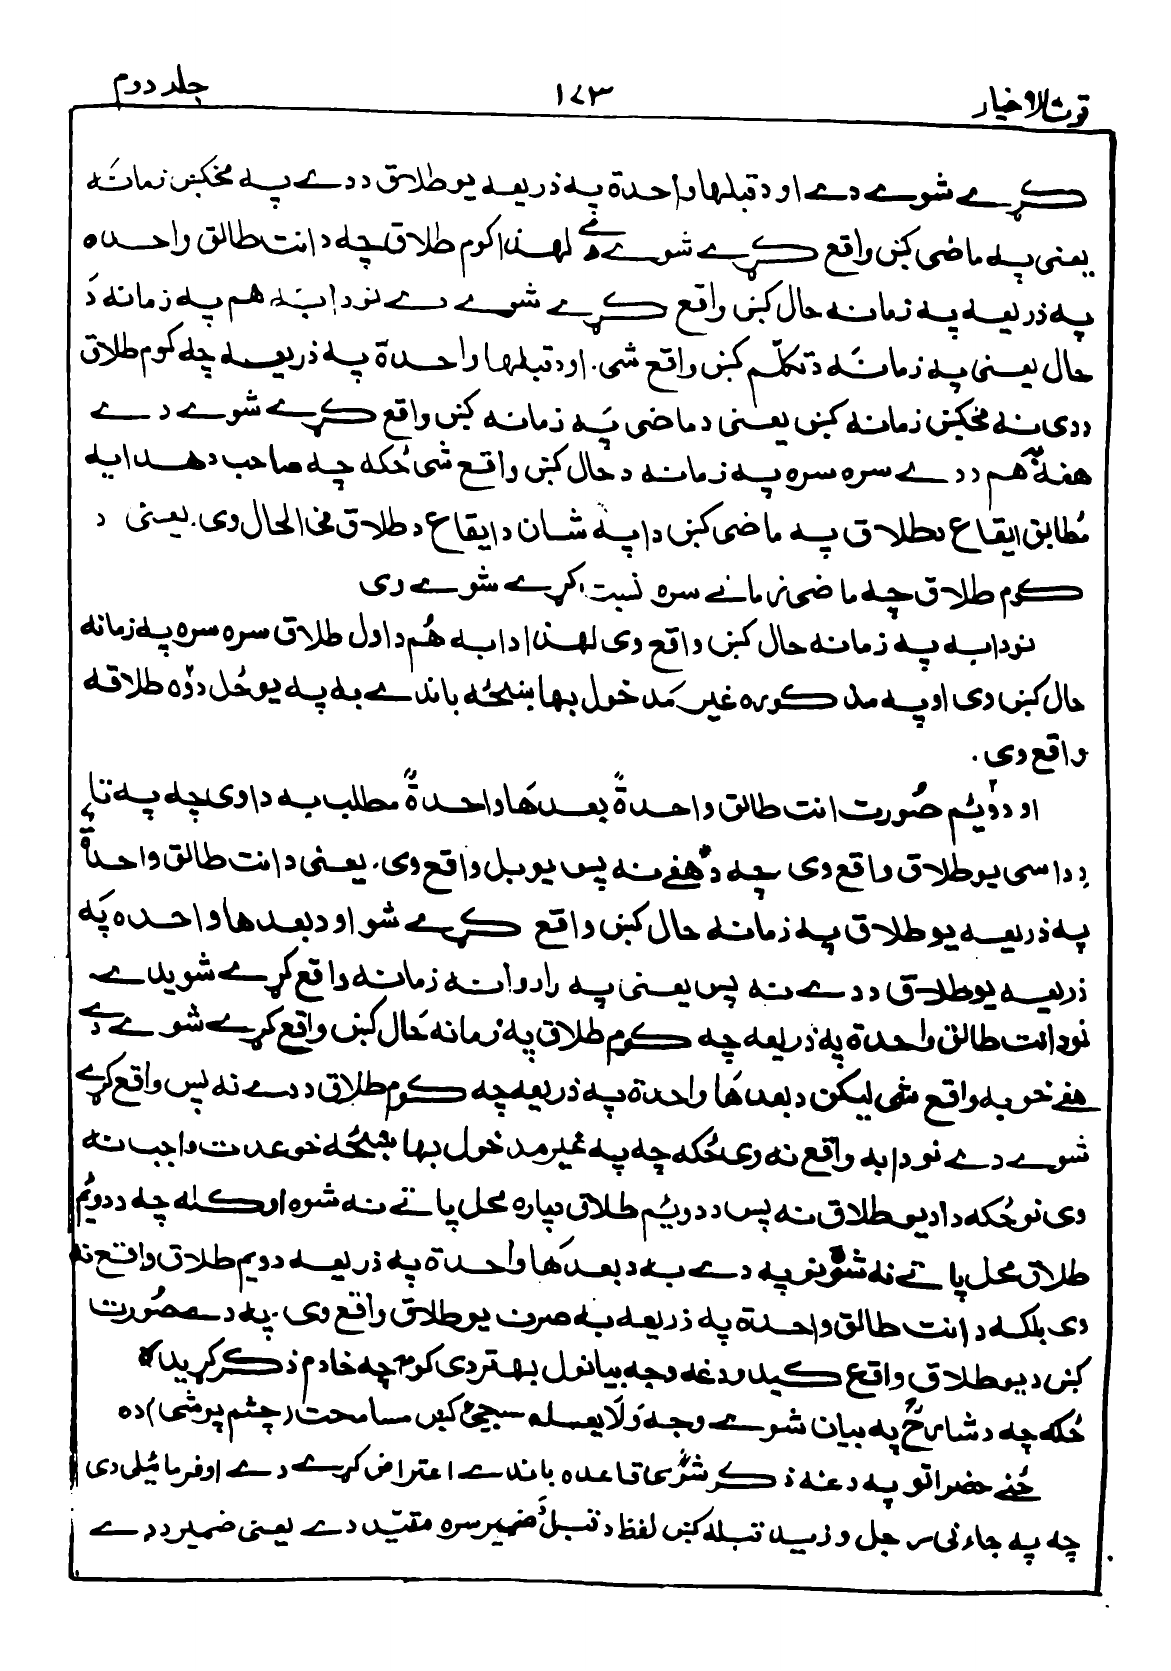 قوت الاخیار ۱۷۳ جلد دوم
کړے شوے دے او د قبلها واحدة په ذریعه یو طلاق د دے په مخکښ زمانه
یعنی په ماضی کښ واقع کړے شوے دے لهذا کوم طلاق چه د انت طالق واحده
په ذریعه په زمانه حال کښ واقع کړے شوے دے نو دا به هم په زمانه دَ
حال یعنی په زمانه دَ تکلّم کښ واقع شی. او د قبلها واحدة په ذریعه چه کوم طلاق
د دی نه مخکښ زمانه کښ یعنی د ماضی په زمانه کښ واقع کړے شوے دے
هغه به هم د دے سره سره په زمانه د حال کښ واقع شی ځکه چه صاحب د هدایه
مُطابق ایقاع د طلاق په ماضی کښ دا په شان د ایقاع د طلاق فی الحال وی. یعنی د
کوم طلاق چه ماضی زمانے سره نسبت کړے شوے وی
نو دا به په زمانه حال کښ واقع وی لهذا دا به هُم دا دل طلاق سره سره په زمانه
حال کښ وی او په مذکوره غیر مَدخول بها ښځه باندے به په یو ځل دوَه طلاقه
واقع وی.
او دوَیُم صُورت انت طالق واحدةً بعدهَا واحدةً مطلب به دا وی چه په تا
داسی یو طلاق واقع وی چه دَ هغے نه پس یو بل واقع وی. یعنی د انت طالق واحدةً
په ذریعه یو طلاق په زمانه حال کښ واقع کړے شو او د بعدها واحده په
ذریعه یو طلاق د دے نه پس یعنی په راروانه زمانه واقع کړے شویدے.
نو د انت طالق واحدة په ذریعه چه کوم طلاق په زمانه حَال کښ واقع کړے شوے دے
هغے خو به واقع شی لیکن د بعدهَا واحدة په ذریعه چه کوم طلاق د دے نه پس واقع کړے
شوے دے نو دا به واقع نه وی ځکه چه په غیر مدخول بها ښځه خو عدت واجب نه
وی نو ځکه دا د یو طلاق نه پس د دویُم طلاق دپاره محل پاتے نه شوه او کله چه د دویُم
طلاق محل پاتے نه شو نو په دے به د بعدهَا واحدة په ذریعه دویم طلاق واقع نه
وی بلکه د انت طالق واحدة په ذریعه به صرف یو طلاق واقع وی. په دے صُورت
کښ د یو طلاق واقع کیدو دغه وجه بیانول بهتر دی کوم چه خادم ذکر کړیده
ځکه چه د شارحؒ په بیان شوے وجه وَلَا یعسله سیجیٔ کښ مسامحت (چشم پوشی) ده
ځنے حضراتو په دغه ذکر شوی قاعده باندے اعتراض کړے دے او فرمائیلی دی
چه په جاءنی رجل و زید قبله کښ لفظ د قبلُ ضمیر سره مقیّد دے یعنی ضمیر د دے